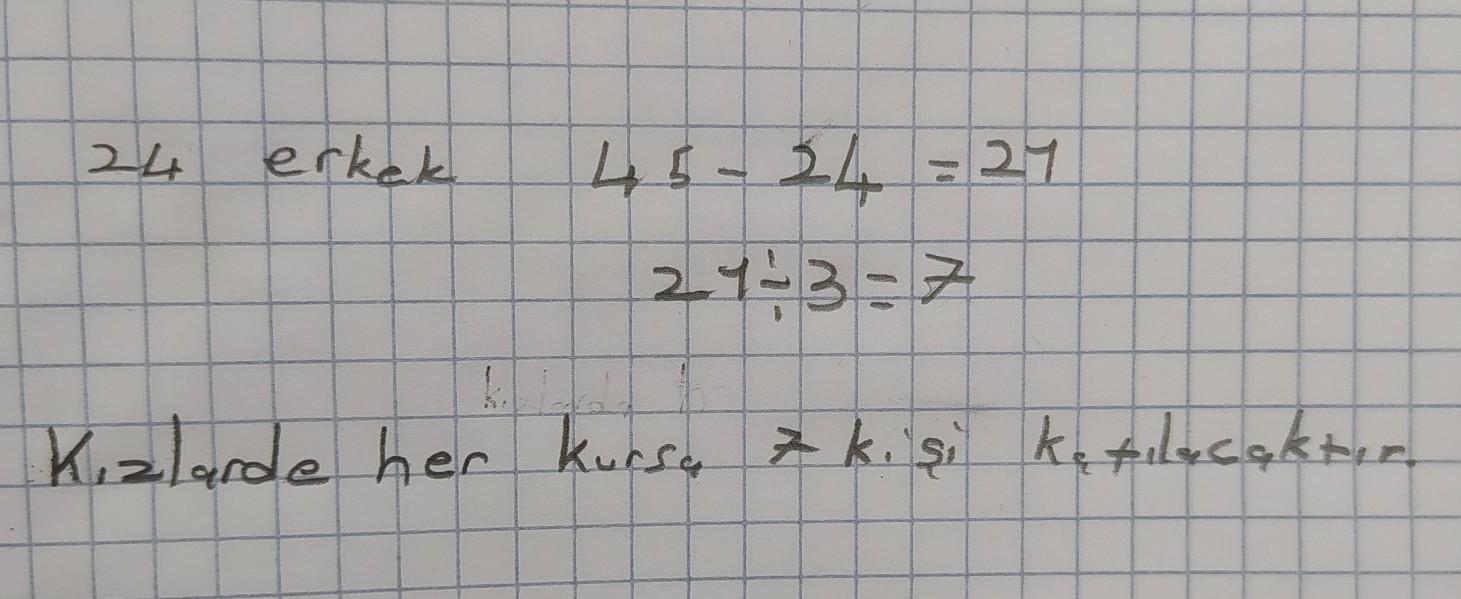 24 erkek 45 - 24 = 21
21 ÷ 3 = 7
Kızlarda her kursa 7 kişi katılacaktır.